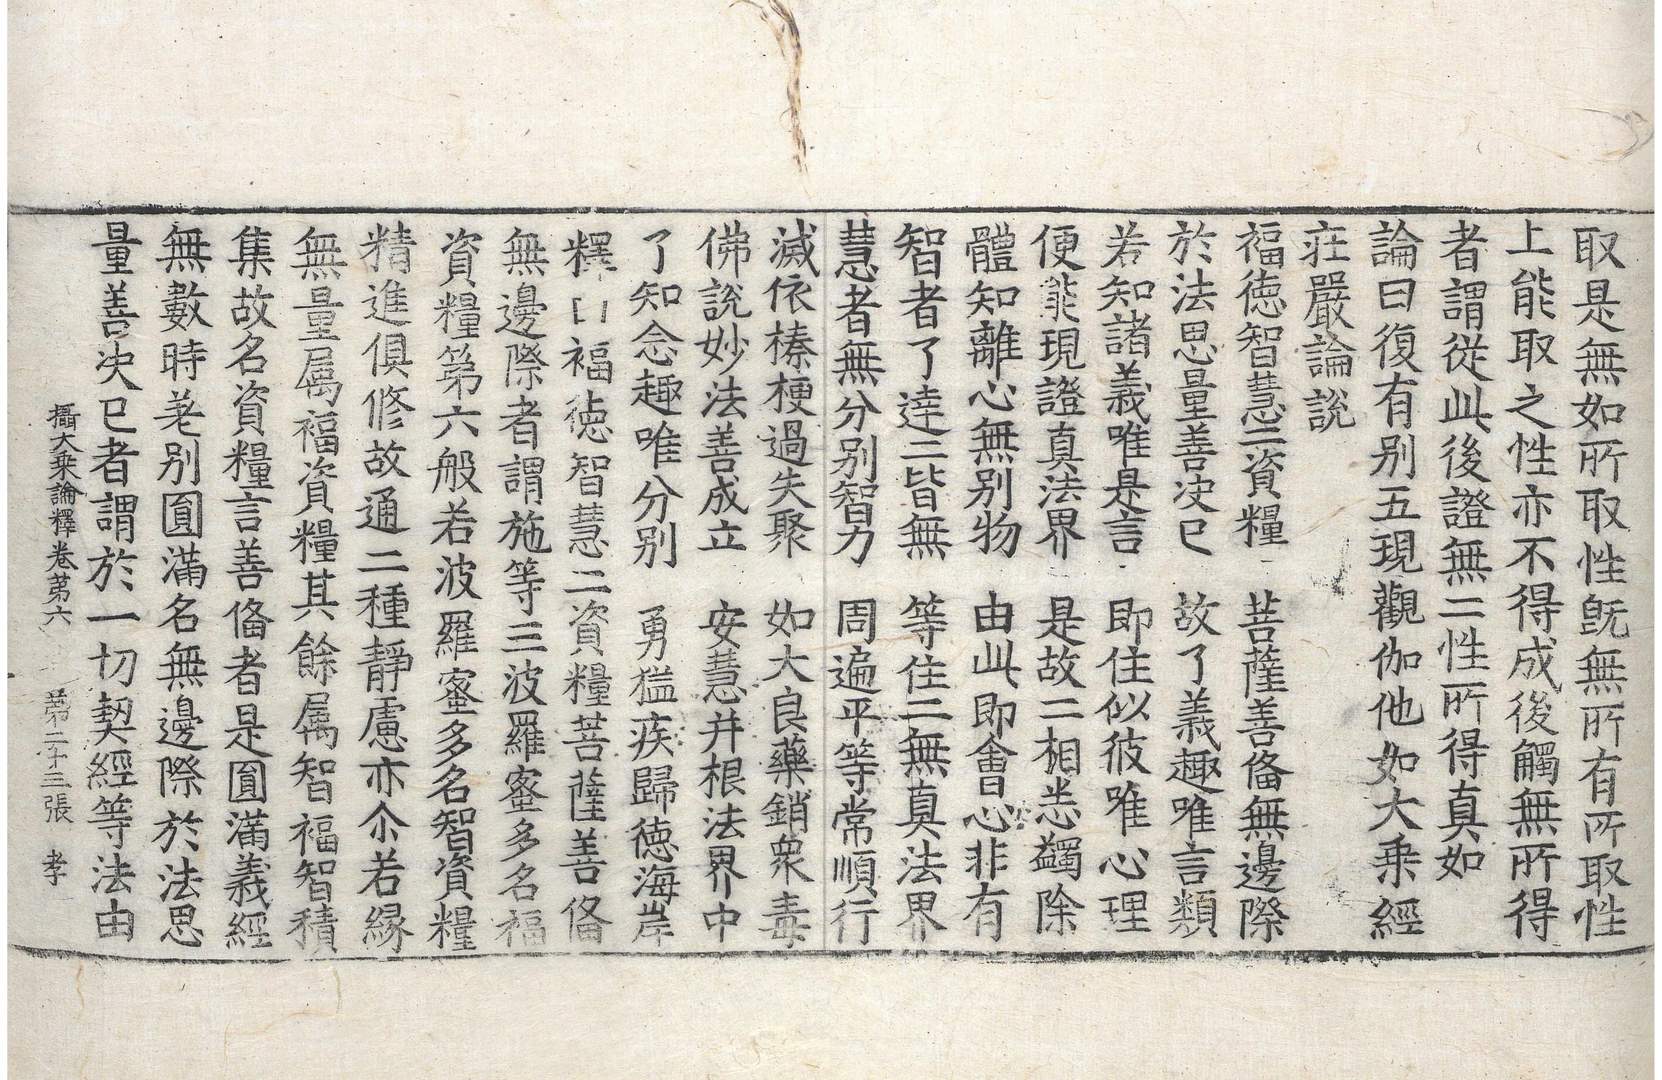 取是無如所取性旣無所有所取性
上能取之性亦不得成後觸無所得
者謂從此後證無二性所得真如
論曰復有别五現觀伽他如大乗經
莊嚴論說
福徳智慧二資糧 菩薩善俻無邊際
於法思量善决已 故了義趣唯言類
若知諸義唯是言 即住似彼唯心理
便能現證真法界 是故二相悉蠲除
體知離心無别物 由此即會心非有
智者了逹二皆無 等住二無真法界
慧者無分别智力 周遍平等常順行
滅依榛梗過失聚 如大良藥銷衆毒
佛說妙法善成立 安慧并根法界中
了知念趣唯分别 勇猛疾歸徳海岸
釋曰福徳智慧二資糧菩薩善俻
無邊際者謂施等三波羅蜜多名福
資糧第六般若波羅蜜多名智資糧
精進俱修故通二種靜慮亦尒若縁
無量属福資糧其餘属智福智積
集故名資糧言善俻者是圓滿義經
無數時差别圓滿名無邊際於法思
量善决已者謂於一切契經等法由
攝大乗論釋卷第六 第二十三張 孝